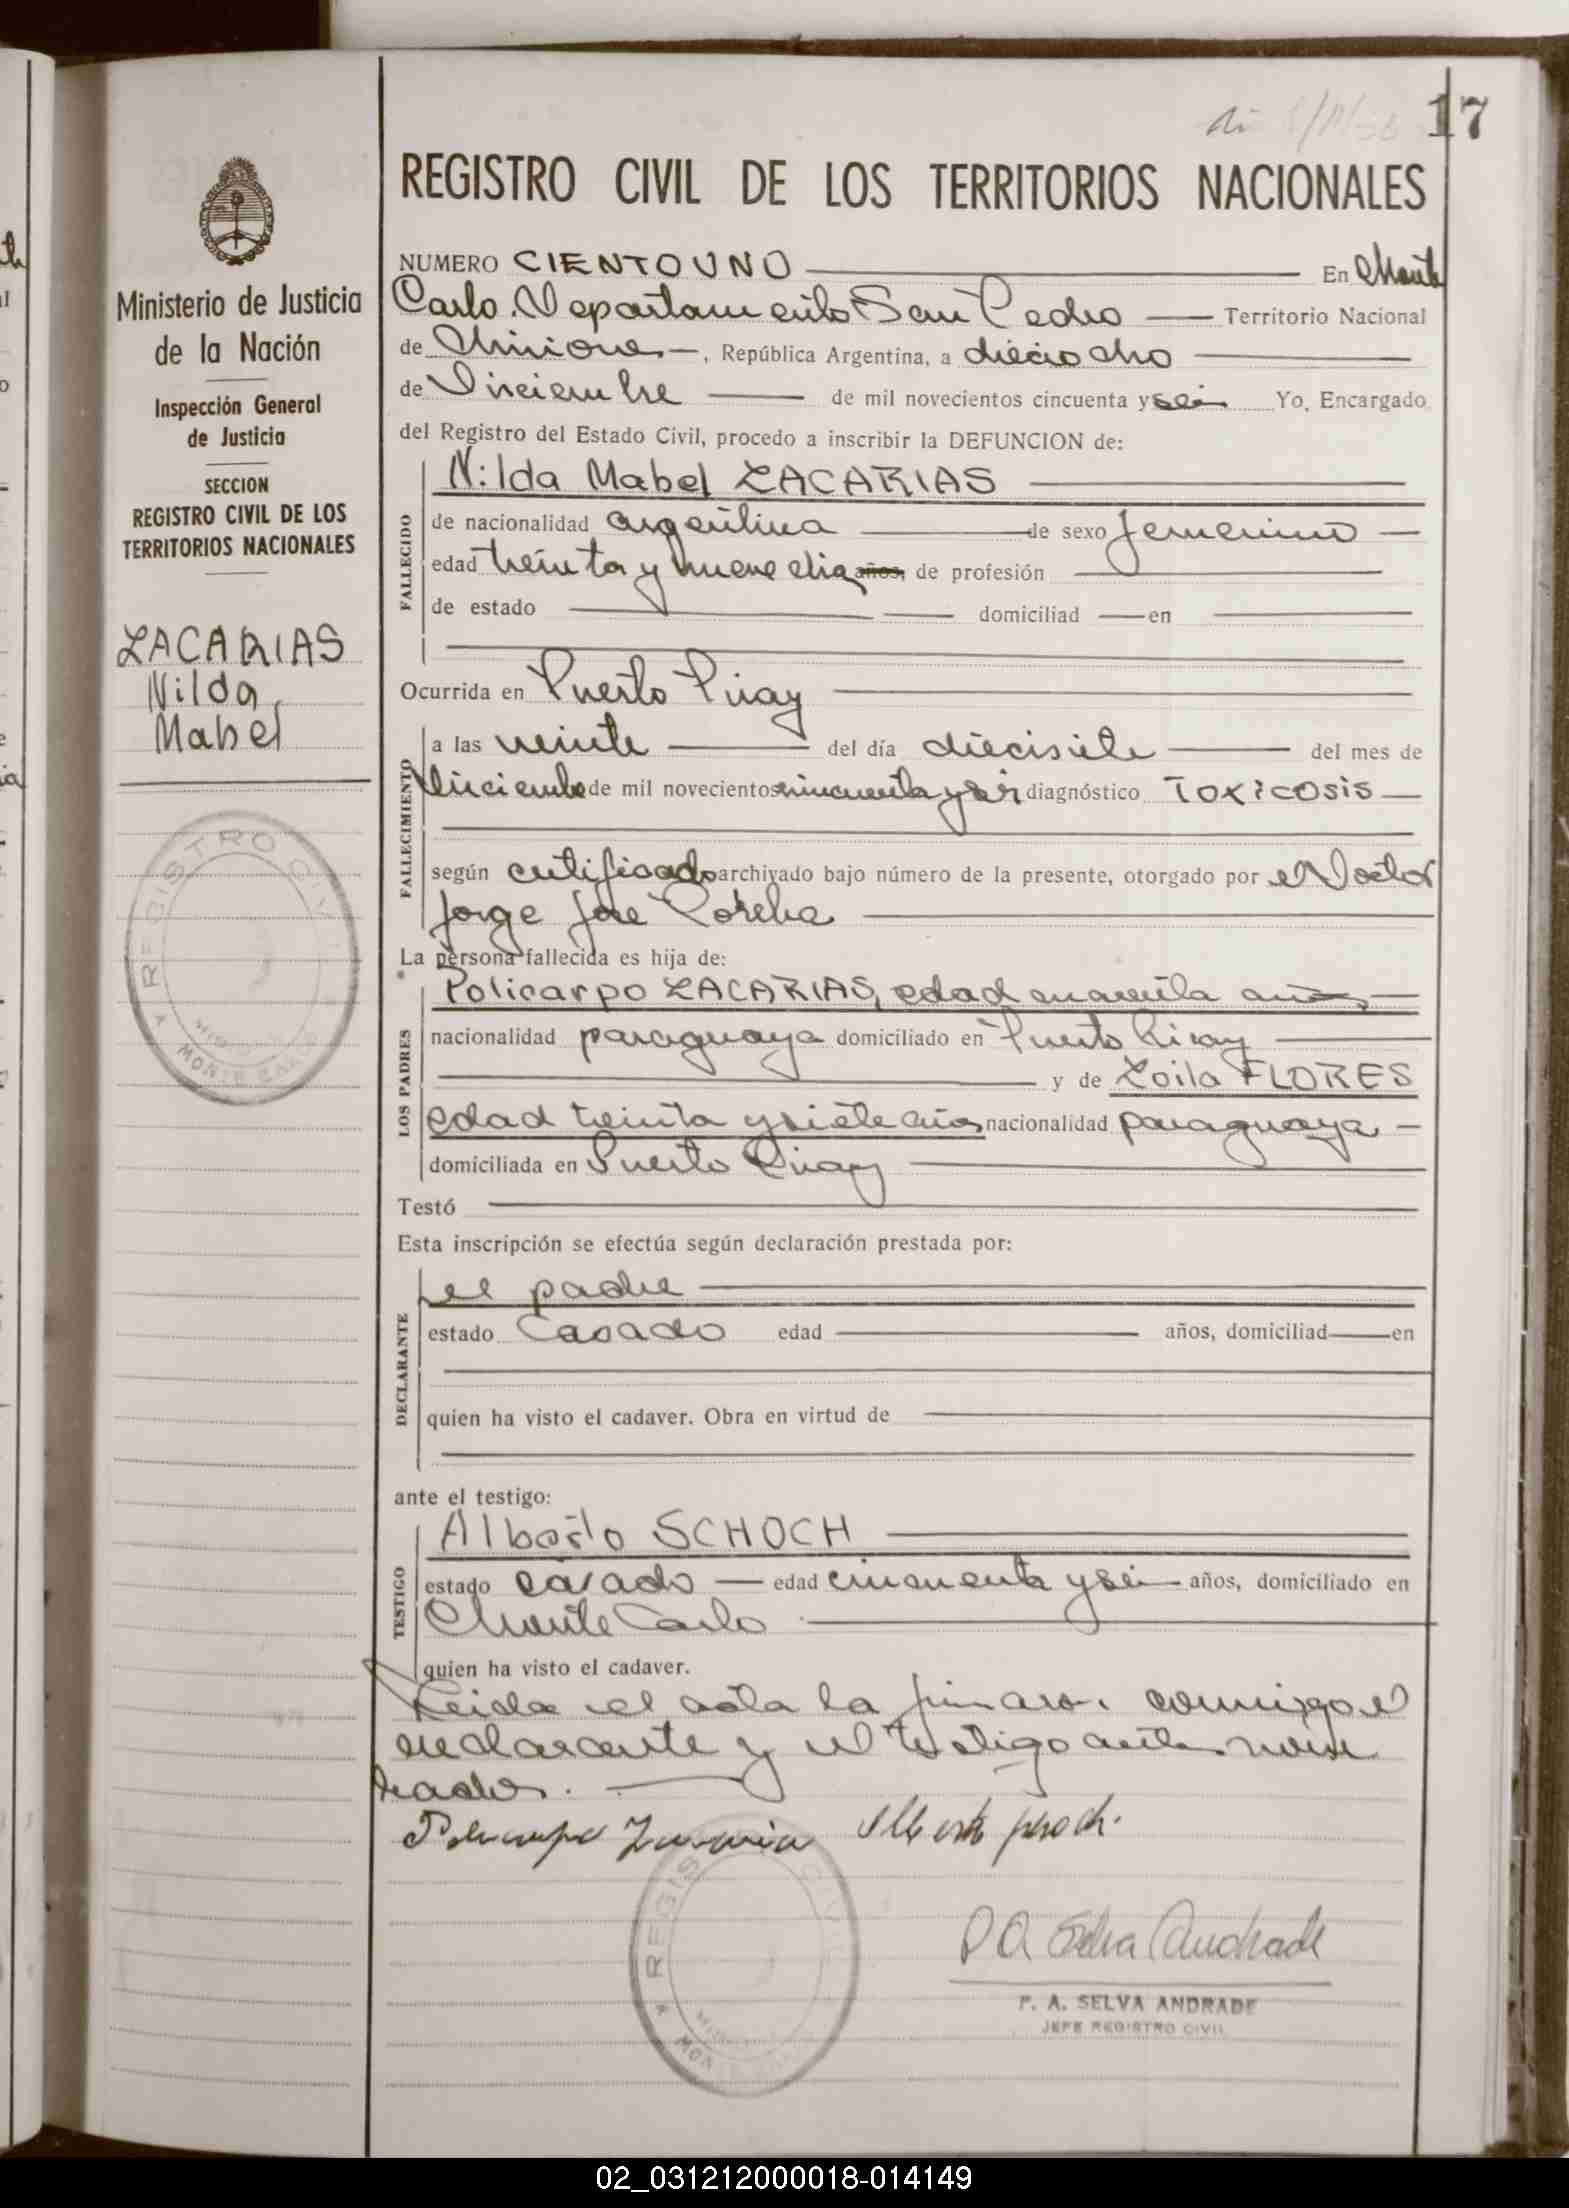 17
REGISTRO CIVIL DE LOS TERRITORIOS NACIONALES
Ministerio de Justicia
de la Nación
Inspección General
de Justicia
SECCION
REGISTRO CIVIL DE LOS
TERRITORIOS NACIONALES
ZACARIAS
Nilda
Mabel
REGISTRO CIVIL
MONTE CARLO
NUMERO CIENTO UNO En Monte
Carlo. Departamento San Pedro Territorio Nacional
de Misiones, República Argentina, a dieciocho
de Diciembre de mil novecientos cincuenta y seis Yo, Encargado
del Registro del Estado Civil, procedo a inscribir la DEFUNCION de:
FALLECIDO
Nilda Mabel ZACARIAS
de nacionalidad argentina de sexo femenino
edad treinta y nueve dias años, de profesión
de estado domiciliad en
Ocurrida en Puerto Piray
FALLECIMIENTO
a las veinte del día diecisiete del mes de
Diciembre de mil novecientos cincuenta y seis diagnóstico Toxicosis
según certificado archivado bajo número de la presente, otorgado por el Doctor
Jorge José
La persona fallecida es hija de:
LOS PADRES
Policarpo ZACARIAS, edad cuarenta años,
nacionalidad paraguaya domiciliado en Puerto Piray
y de Zoila FLORES
edad treinta y siete años nacionalidad paraguaya
domiciliada en Puerto Piray
Testó
Esta inscripción se efectúa según declaración prestada por:
DECLARANTE
el padre
estado Casado edad años, domiciliad en
quien ha visto el cadaver. Obra en virtud de
ante el testigo:
TESTIGO
Alberto SCHOCH
estado casado edad cincuenta y seis años, domiciliado en
Monte Carlo
quien ha visto el cadaver.
Leida el acta la firmaron conmigo el
declarante y el testigo antes nom
brados.
Policarpo Zacarias Alberto Schoch.
REGISTRO CIVIL
MONTE CARLO
P A Selva Andrade
P. A. SELVA ANDRADE
JEFE REGISTRO CIVIL
02_031212000018-014149